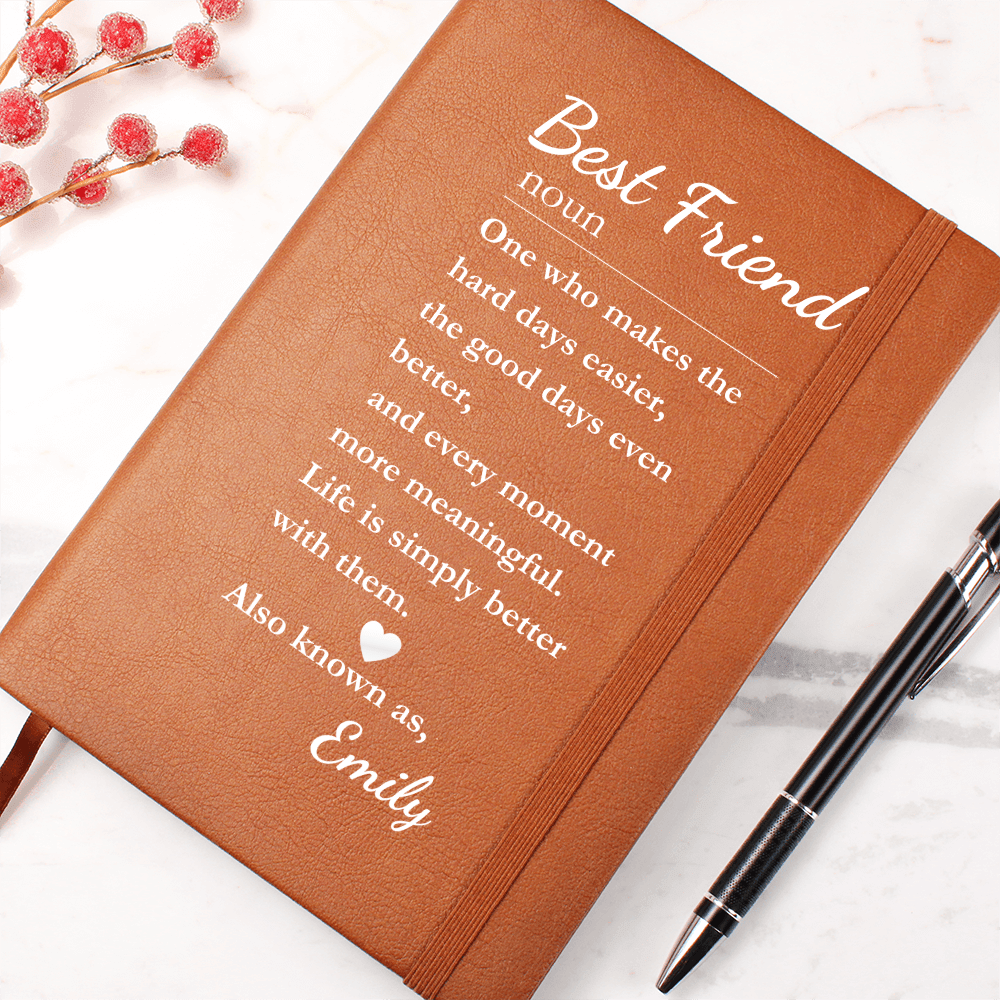 Best Friend
noun
One who makes the
hard days easier,
the good days even
better,
and every moment
more meaningful.
Life is simply better
with them.
Also known as,
Emily